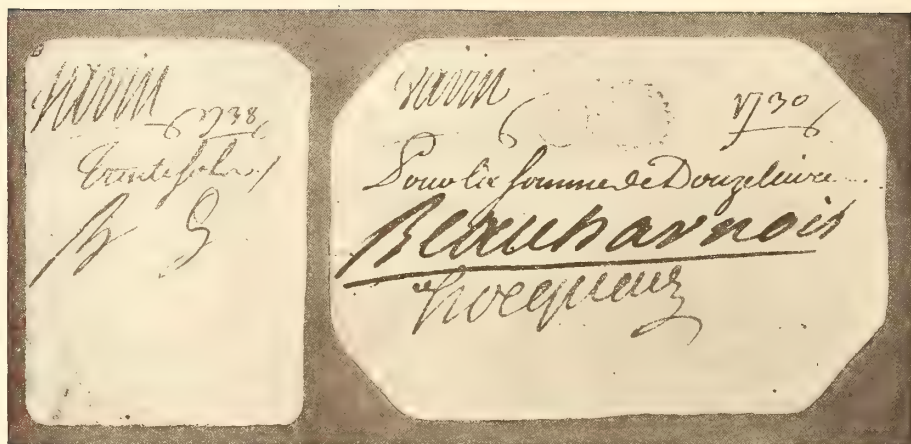 Varin 1738
trente sols
B H
Varin 1730
Pour la somme de Douze livre
Beauharnois
hocquart